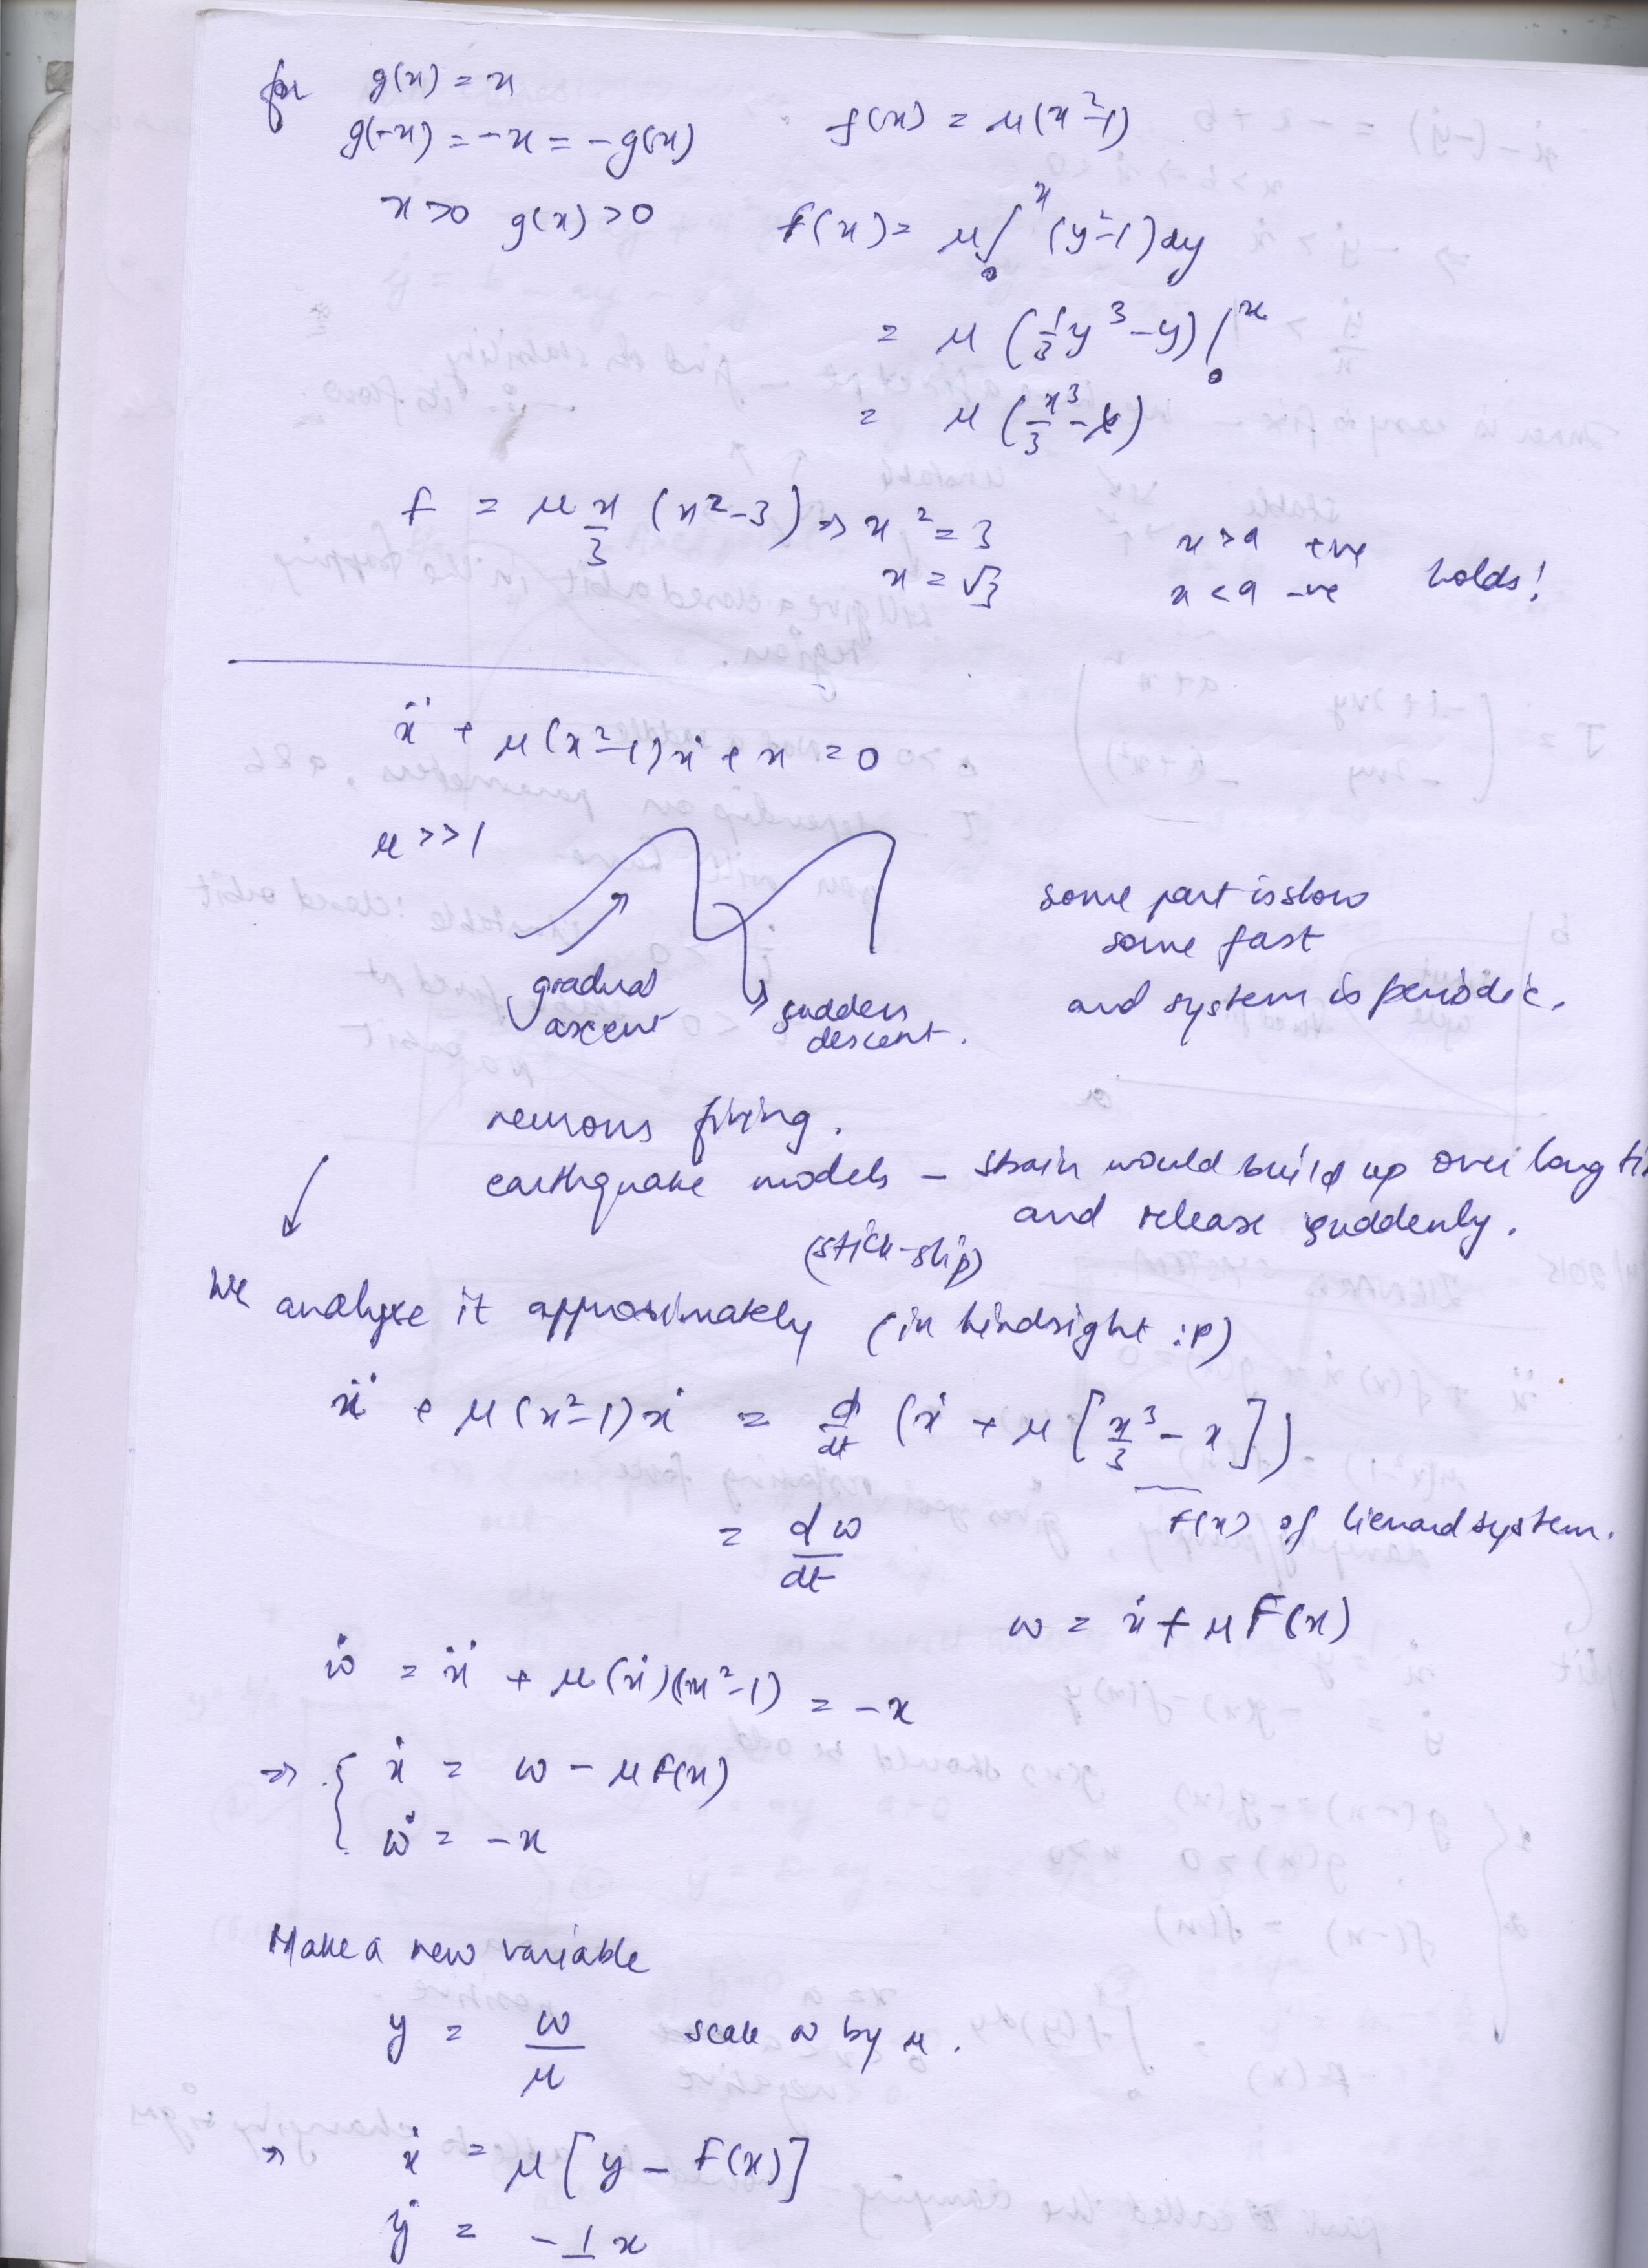 for g(x) = x
g(-x) = -x = -g(x)
f(x) = μ(x²-1)
x>0 g(x)>0
F(x) = μ∫₀ˣ (y²-1)dy
= μ (1/3 y³ - y)|₀ˣ
= μ (x³/3 - x)
F = μ x/3 (x²-3) ⇒ x² = 3
x = √3
x>a +ve
x<a -ve
holds!
ẍ + μ(x²-1)ẋ + x = 0
μ >> 1
gradual
ascent
sudden
descent.
some part is slow
some fast
and system is periodic.
neurons firing.
earthquake models - strain would build up over long ti
and release suddenly.
(stick-slip)
We analyze it approximately (in hindsight :P)
ẍ + μ(x²-1)ẋ = d/dt (ẋ + μ[x³/3 - x])
F(x) of lienard system.
= dw/dt
w = ẋ + μF(x)
ẇ = ẍ + μ(ẋ)(x²-1) = -x
⇒ { ẋ = w - μF(x)
ẇ = -x
Make a new variable
y = w/μ scale w by μ.
⇒ ẋ = μ[y - F(x)]
ẏ = -1 x